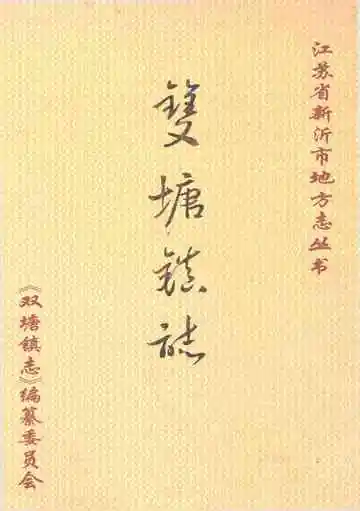 江苏省新沂市地方志丛书
雙塘鎮誌
《双塘镇志》编纂委员会